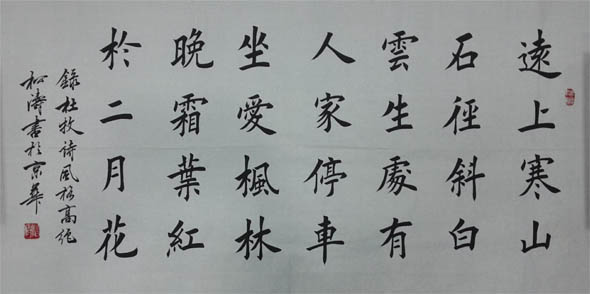 遠上寒山
石徑斜白
雲生處有
人家停車
坐愛楓林
晚霜葉紅
於二月花
錄杜牧詩風格高絕
松濤書於京華